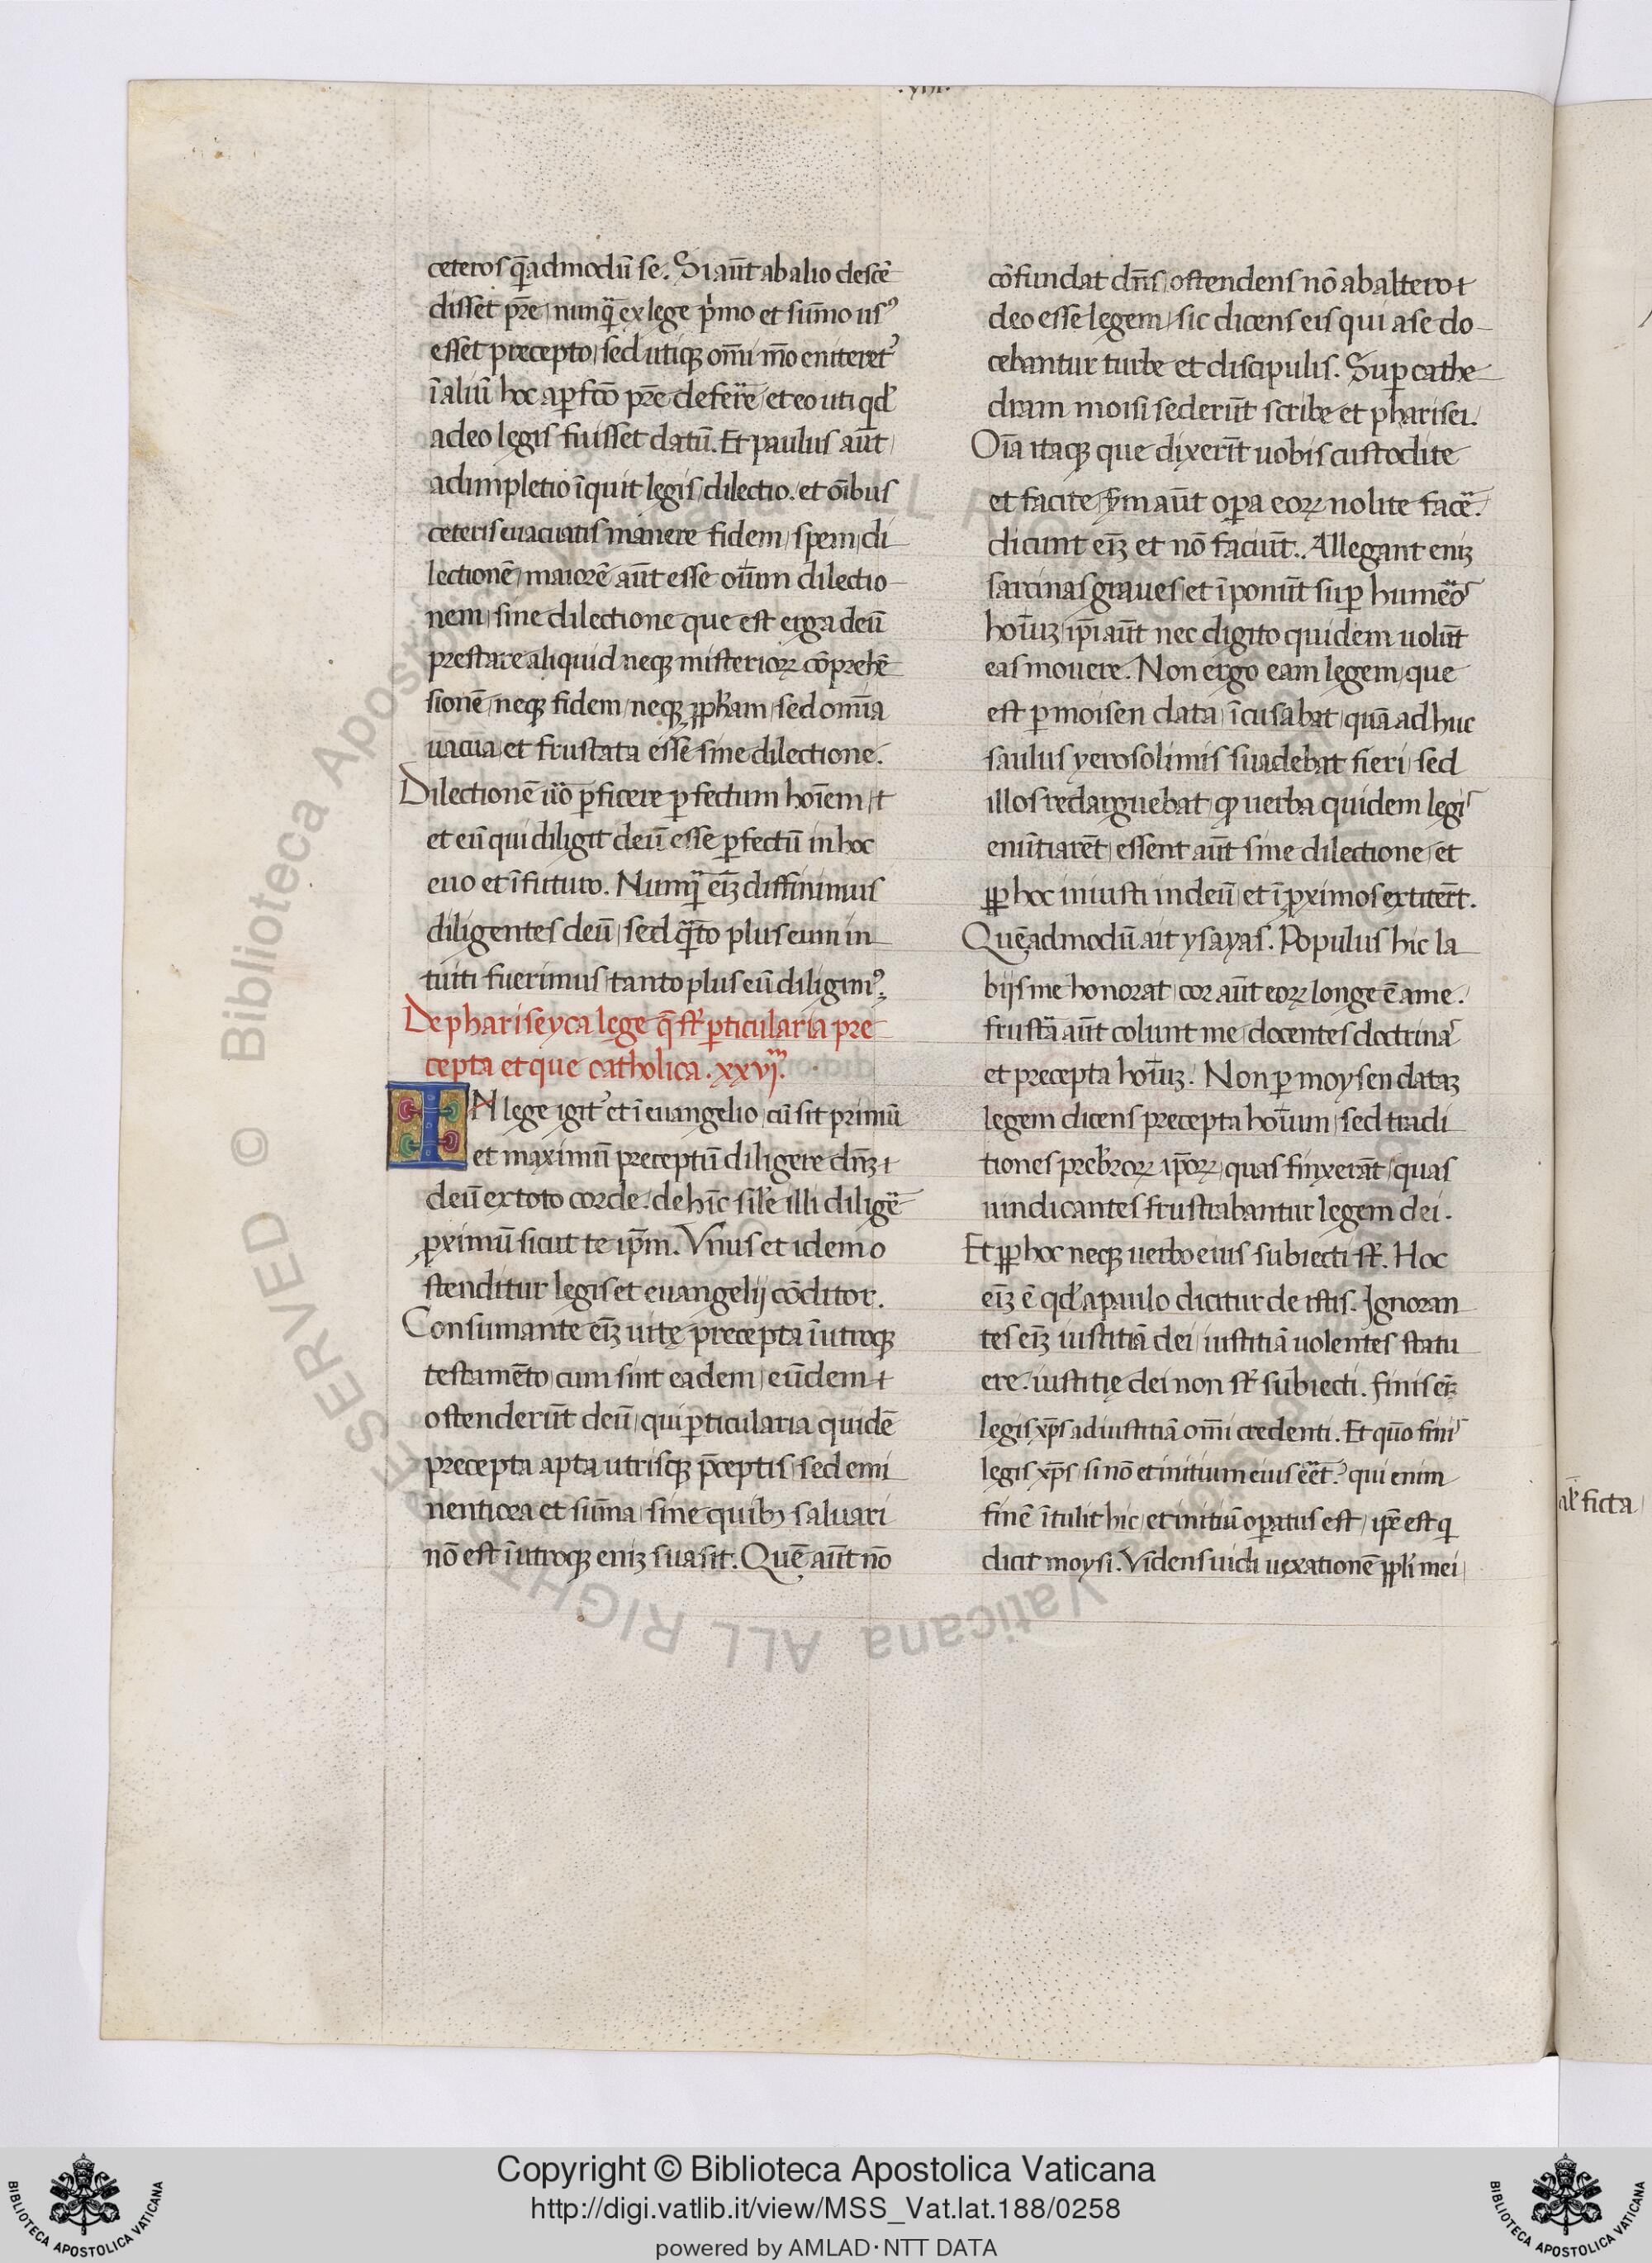 .viii.
ceteros q̄admodū se. Si aūt ab alio descē
disset pr̄e, nunq̄ ex lege p̍mo et sūmo usꝰ
esset precepto, sed utiqꝫ om̄i m̄o eniteret᷒
ī aliū hoc a ꝑfcō pr̄e defer̄e, et eo uti qđ
a deo legis fuisset datū. Et paulus aūt,
adimpletio īquit legis, dilectio. et oībus
ceteris euacuatis manere fidem, spem, di
lectionē, maiorē aūt esse oīum dilectio
nem, sine dilectione que est erga deū
prestare aliquid neqꝫ misterioꝝ cōprehē
sionē, neqꝫ fidem, neqꝫ ꝓph̄am, sed omīa
uacua et frustata esse sine dilectione.
Dilectionē ūo ꝑficere ꝑfectum hoīem, t
et eū qui diligit deū esse ꝑfectū in hoc
euo et ī futuro. Numq̄ eīꝫ diffinimus
diligentes deū, sed q̄to plus eum in
tuiti fuerimus, tanto plus eū diligimꝰ.
De phariseyca lege q̄ sr̄ ꝑticularia pre
cepta et que catholica .xxvjᵐ.
IN lege igit᷒ et ī euangelio, cū sit primū
et maximū preceptū diligere dn̄ꝫ t
deū ex toto corde, dehīc sil̄e illi diligē
ꝓximū sicut te ip̄m. Vnus et idem o
stenditur legis et euangelij cōditor.
Consumante eīꝫ uitę precepta ī utroqꝫ
testamēto, cum sint eadem, eūdem t
ostenderūt deū, qui ꝑticularia quidē
precepta apta utrisqꝫ p̄ceptis, sed emi
nentiora et sūma, sine quibꝫ saluari
nō est ī utroqꝫ eniꝫ suasit. Quē aūt nō
cōfundat dn̄s, ostendens nō ab altero t
deo esse legem, sic dicens eis qui a se do
cebantur turbe et discipulis. Suꝑ cathe
dram moisi sederūt scribe et pharisei.
Oīa itaqꝫ que dixerīt uobis custodite
et facite, s̄m aūt oꝑa eoꝝ nolite facē.
dicunt eīꝫ et nō faciūt. Allegant eniꝫ
sarcinas graues, et īponūt suꝑ humēos
hoīuꝫ, ip̄i aūt nec digito quidem uolūt
eas mouere. Non ergo eam legem, que
est ꝑ moisen data, īcusabat, quā adhuc
saulus yerosolimis suadebat fieri, sed
illos redarguebat, ꝙ uerba quidem legis
enūtiarēt, essent aūt sine dilectione, et
ꝓp hoc iniusti in deū et ī ꝓximos extitert̄.
Quēadmodū ait ysayas. Populus hic la
bijs me honorat, cor aūt eoꝝ longe ē a me.
frustā aūt colunt me, docentes doctrinas
et precepta hoīuꝫ. Non ꝑ moysen dataꝫ
legem dicens precepta hoīum, sed tradi
tiones prebr̄oꝝ ip̄oꝝ, quas finxerāt, quas
uindicantes frustrabantur legem dei.
Et ꝓp hoc neqꝫ uerbo eius subiecti sr̄. Hoc
eīꝫ ē qđ a paulo dicitur de istis. Ignoran
tes eīꝫ iustitiā dei, iustitiā uolentes statu
ere, iustitię dei non sr̄ subiecti. finis eīꝫ
legis xp̄s ad iustitiā om̄i credenti. Et quō finis
legis xp̄s, si nō et initium eius eēt? qui enim
finē ītulit hic, et initiū oꝑatus est, ip̄e est q
dicit moysi. Videns uidi uexationē ppl̄i mei,
al̄ ficta
© Biblioteca Apostolica Vaticana ALL RIGHTS RESERVED
Copyright © Biblioteca Apostolica Vaticana
http://digi.vatlib.it/view/MSS_Vat.lat.188/0258
powered by AMLAD·NTT DATA
BIBLIOTECA APOSTOLICA VATICANA
BIBLIOTECA APOSTOLICA VATICANA